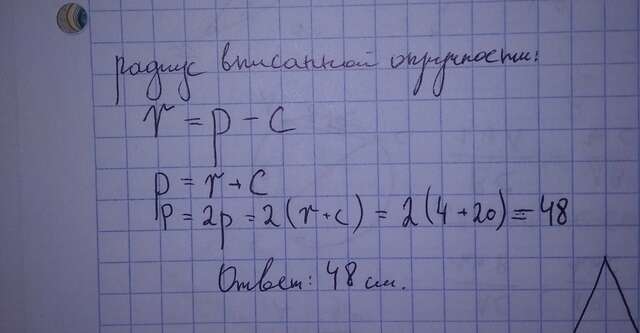 радиус вписанной окружности:
r = p - c
p = r + c
P = 2p = 2(r+c) = 2(4+20) = 48
Ответ: 48 см.